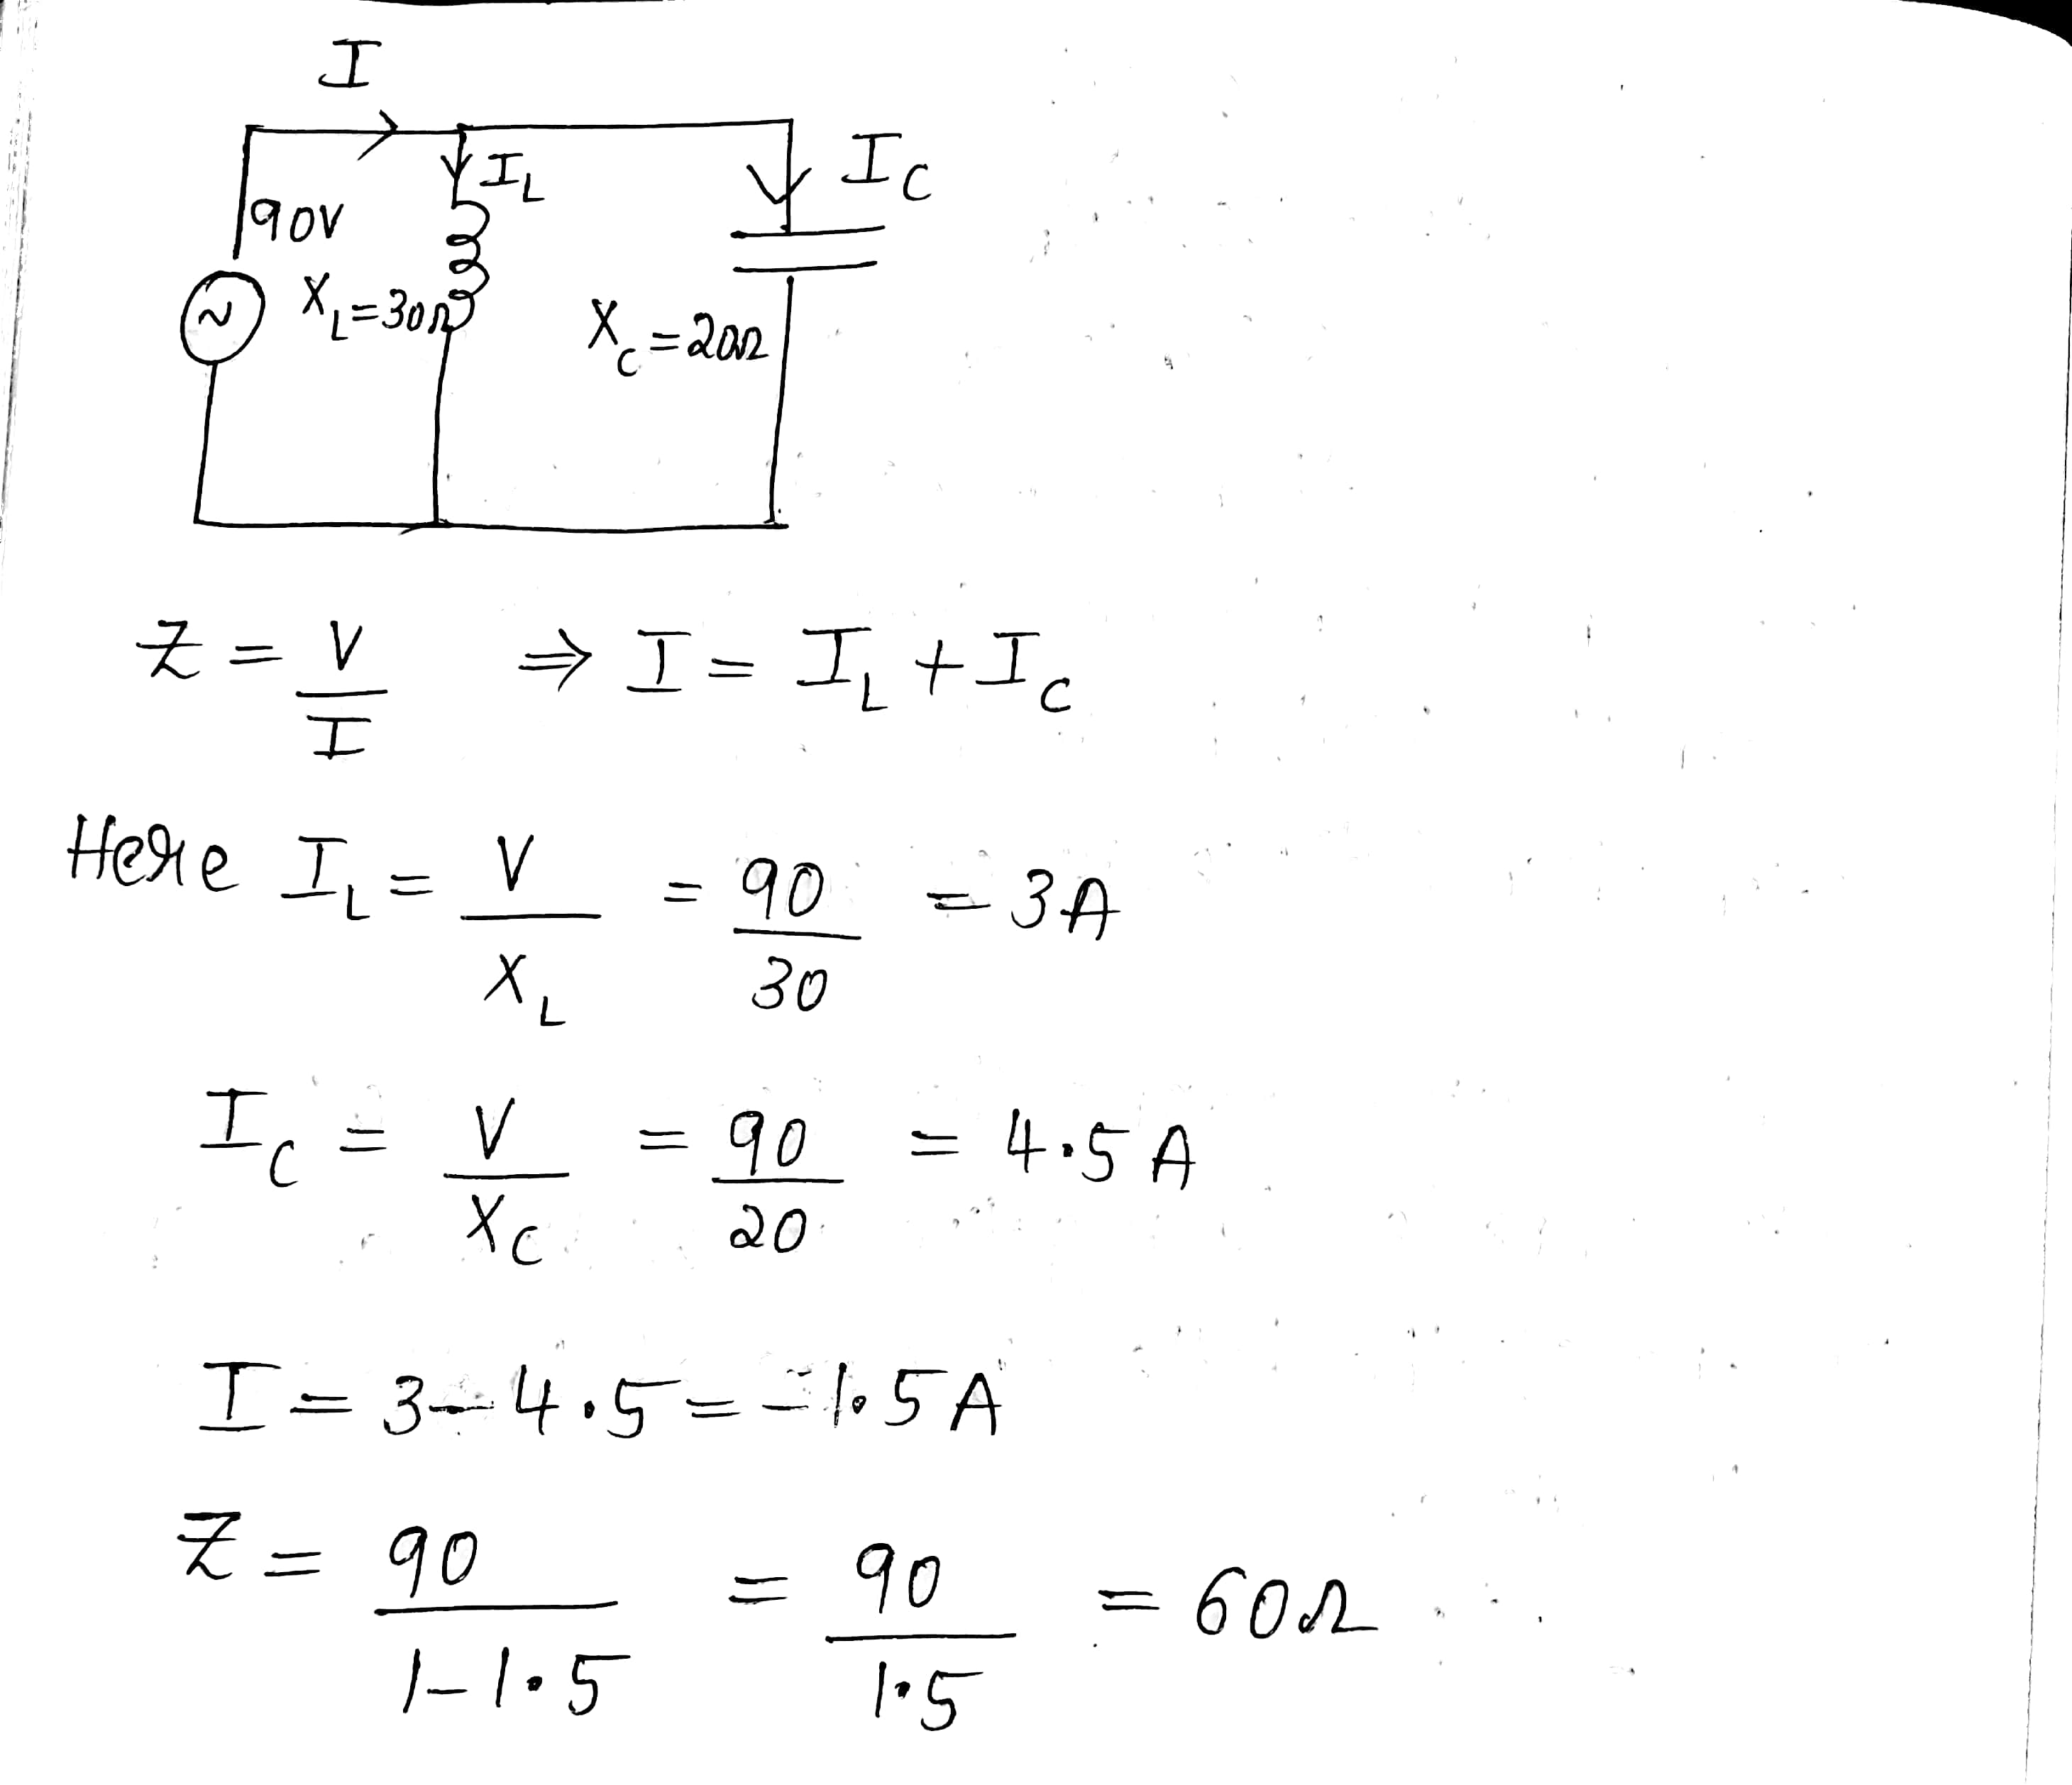 I
I_L
I_C
90V
~
X_L=30Ω
X_C=20Ω
Z = V/I ⇒ I = I_L + I_C
Here I_L = V/X_L = 90/30 = 3A
I_C = V/X_C = 90/20 = 4.5A
I = 3-4.5 = -1.5A
Z = 90/1-1.5 = 90/1.5 = 60Ω